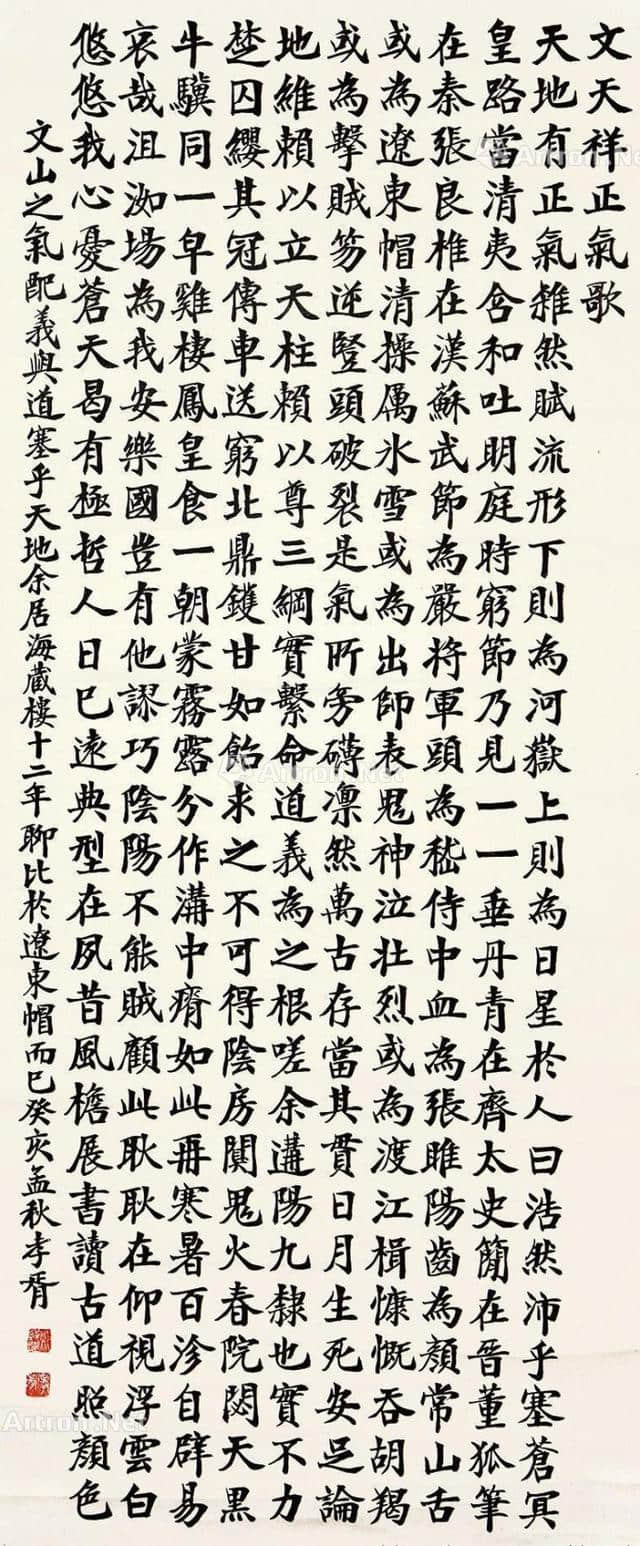 文天祥正氣歌
天地有正氣雜然賦流形下則為河嶽上則為日星於人曰浩然沛乎塞蒼冥
皇路當清夷含和吐明庭時窮節乃見一一垂丹青在齊太史簡在晉董狐筆
在秦張良椎在漢蘇武節為嚴將軍頭為嵇侍中血為張睢陽齒為顏常山舌
或為遼東帽清操厲冰雪或為出師表鬼神泣壯烈或為渡江楫慷慨吞胡羯
或為擊賊笏逆豎頭破裂是氣所旁礴凛然萬古存當其貫日月生死安足論
地維賴以立天柱賴以尊三綱實繫命道義為之根嗟余遘陽九隸也實不力
楚囚纓其冠傳車送窮北鼎鑊甘如飴求之不可得陰房闃鬼火春院閟天黑
牛驥同一皁雞棲鳳皇食一朝蒙霧露分作溝中瘠如此再寒暑百沴自辟易
哀哉沮洳場為我安樂國豈有他謬巧陰陽不能賊顧此耿耿在仰視浮雲白
悠悠我心憂蒼天曷有極哲人日已遠典型在夙昔風檐展書讀古道照顏色
文山之氣配義與道塞乎天地余居海藏樓十二年聊比於遼東帽而已癸亥孟秋孝胥
Artron.Net